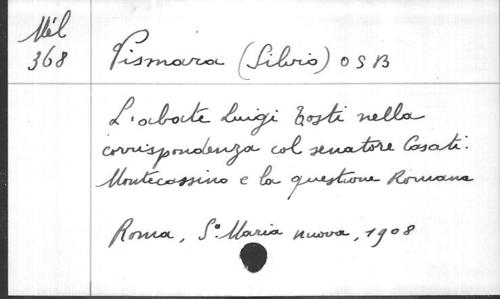 Mél
368
Pismara (Silvio) OSB
L'abate Luigi Tosti nella
corrispondenza col senatore Casati:
Montecassino e la questione Romana
Roma, Sª Maria nuova, 1908